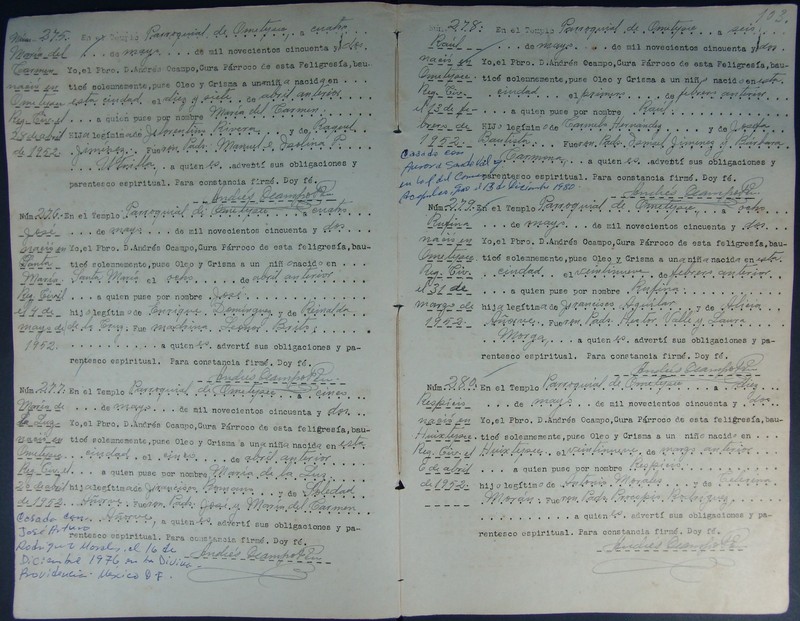 Núm. 275. En el Templo Parroquial de Ometepec, a cuatro
María del . . . de mayo . . . de mil novecientos cincuenta y dos
Carmen Yo, el Pbro. D. Andrés Ocampo, Cura Párroco de esta Feligresía, bau-
nació en ticé solemnemente, puse Oleo y Crisma a una niña nacida en
Ometepec esta ciudad el diez y siete de abril anterior
Reg. Civil el . . . a quien puse por nombre María del Carmen
28 de abril Hija legítima de Florentino Rivera y de Raquel
de 1952. Jiménez. Fueron Padr. Manuel E. Josefina P.
a quien es advertí sus obligaciones y
parentesco espiritual. Para constancia firmé. Doy fé.
Andrés Ocampo
Núm. En el Templo Parroquial de Ometepec a cuatro
José . . . de mayo . . . de mil novecientos cincuenta y dos
nació en Yo, el Pbro. D. Andrés Ocampo, Cura Párroco de esta feligresía, bau-
Santa ticé solemnemente, puse Oleo y Crisma a un niño nacido en
María Santa María el ocho de abril anterior
Reg. Civil . . . a quien puse por nombre José
el 4 de hijo legítimo de Enrique Domínguez y de Reinalda
mayo de de la Cruz. Fue madrina
1952. . . . a quien advertí sus obligaciones y pa-
rentesco espiritual. Para constancia firmé. Doy fé.
Andrés Ocampo
Núm. 277. En el Templo Parroquial de Ometepec a cinco
María de . . . de mayo . . . de mil novecientos cincuenta y dos
la Luz Yo, el Pbro. D. Andrés Ocampo, Cura Párroco de esta feligresía, bau-
nació en ticé solemnemente, puse Oleo y Crisma a una niña nacida en esta
Ometepec ciudad el cinco de abril anterior
Reg. Civil el . . . a quien puse por nombre María de la Luz
de abril hija legítima de Francisco y de Soledad
de 1952. Fueron Padr. y María del Carmen
a quien es advertí sus obligaciones y pa-
rentesco espiritual. Para constancia firmé. Doy fé.
Andrés Ocampo
Casada con
José Arturo
Rodriguez Morales, el 16 de
Diciembre 1976 en la Divina
Providencia - Mexico D F.
103.
Núm. 278: En el Templo Parroquial de Ometepec a seis
Raúl . . . de mayo . . . de mil novecientos cincuenta y dos
nació en Yo, el Pbro. D. Andrés Ocampo, Cura Párroco de esta Feligresía, bau-
Ometepec ticé solemnemente, puse Oleo y Crisma a un niño nacido en esta
Reg. Civ. ciudad el primero de febrero anterior
el 12 de fe- . . . a quien puse por nombre Raúl
brero de Hijo legítimo de Hernández y de Josefa
1952. Bautista. Fueron Padr. Daniel Jiménez y Bárbara
Carmona, a quien es advertí sus obligaciones y
parentesco espiritual. Para constancia firmé. Doy fé.
Andrés Ocampo
Casado con
en la del
Acapulco, Gro. el 13 de Diciembre 1980
Núm. 279. En el Templo Parroquial de Ometepec a ocho
Rufina . . . de mayo . . . de mil novecientos cincuenta y dos
nació en Yo, el Pbro. D. Andrés Ocampo, Cura Párroco de esta feligresía, bau-
Ometepec ticé solemnemente, puse Oleo y Crisma a una niña nacida en esta
Reg. Civ. ciudad el veintinueve de febrero anterior
el 31 de . . . a quien puse por nombre Rufina
marzo de hija legítima de Francisco Aguilar y de Alicia
1952. Fueron Padr. Héctor Valle y Laura
Morga, . . . a quien es advertí sus obligaciones y pa-
rentesco espiritual. Para constancia firmé. Doy fé.
Andrés Ocampo
Núm. 280. En el Templo Parroquial de Ometepec a diez
Respicio . . . de mayo . . . de mil novecientos cincuenta y dos
nació en Yo, el Pbro. D. Andrés Ocampo, Cura Párroco de esta feligresía, bau-
Huixtepec ticé solemnemente, puse Oleo y Crisma a un niño nacido en
Reg. Civ. el Huixtepec el veintinueve de marzo anterior
6 de abril . . . a quien puse por nombre Respicio
de 1952. hijo legítimo de Antonio Morales y de Ceferina
Morán. Fueron Padr.
a quien es advertí sus obligaciones y pa-
rentesco espiritual. Para constancia firmé. Doy fé.
Andrés Ocampo